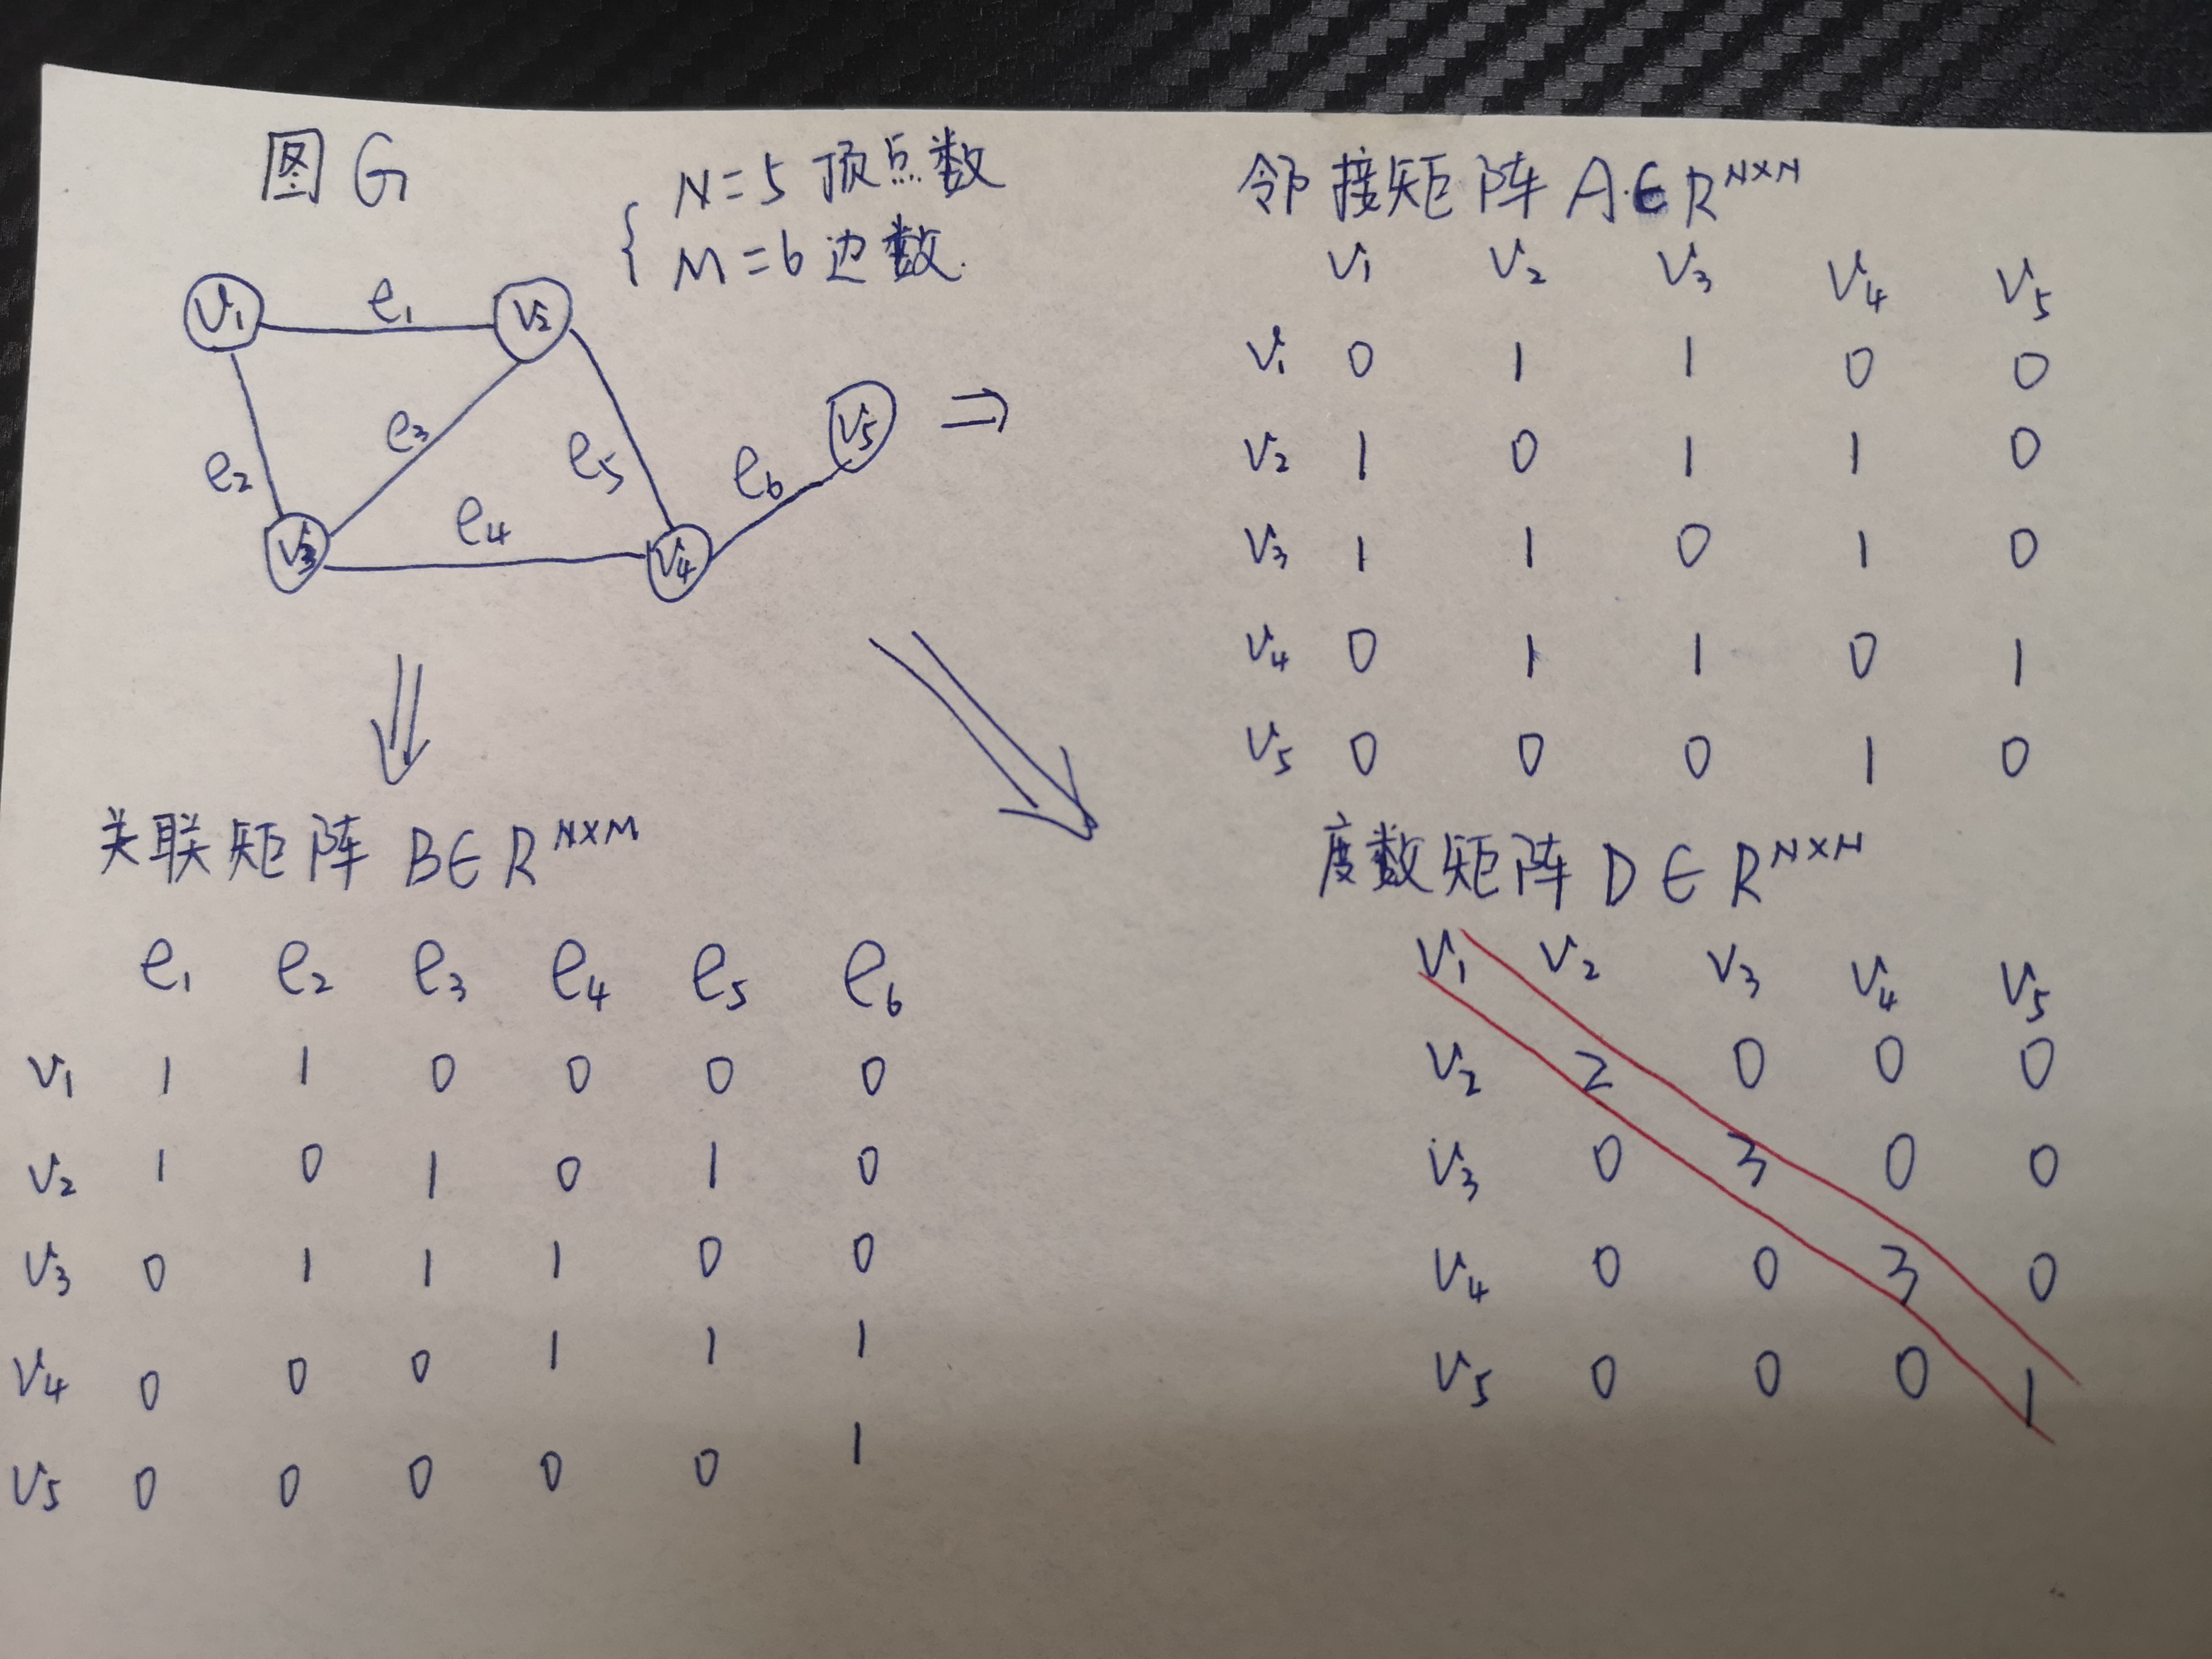 图 G
{ N=5 顶点数
M=6 边数.
v₁ e₁ v₂
e₂ e₃ e₅ e₆ v₅ ⇒
v₃ e₄ v₄
邻接矩阵 A∈R^{N×N}
v₁ v₂ v₃ v₄ v₅
v₁ 0 1 1 0 0
v₂ 1 0 1 1 0
v₃ 1 1 0 1 0
v₄ 0 1 1 0 1
v₅ 0 0 0 1 0
关联矩阵 B∈R^{N×M}
e₁ e₂ e₃ e₄ e₅ e₆
v₁ 1 1 0 0 0 0
v₂ 1 0 1 0 1 0
v₃ 0 1 1 1 0 0
v₄ 0 0 0 1 1 1
v₅ 0 0 0 0 0 1
度数矩阵 D∈R^{N×N}
v₁ v₂ v₃ v₄ v₅
v₂ 2 0 0 0
v₃ 0 3 0 0
v₄ 0 0 3 0
v₅ 0 0 0 1